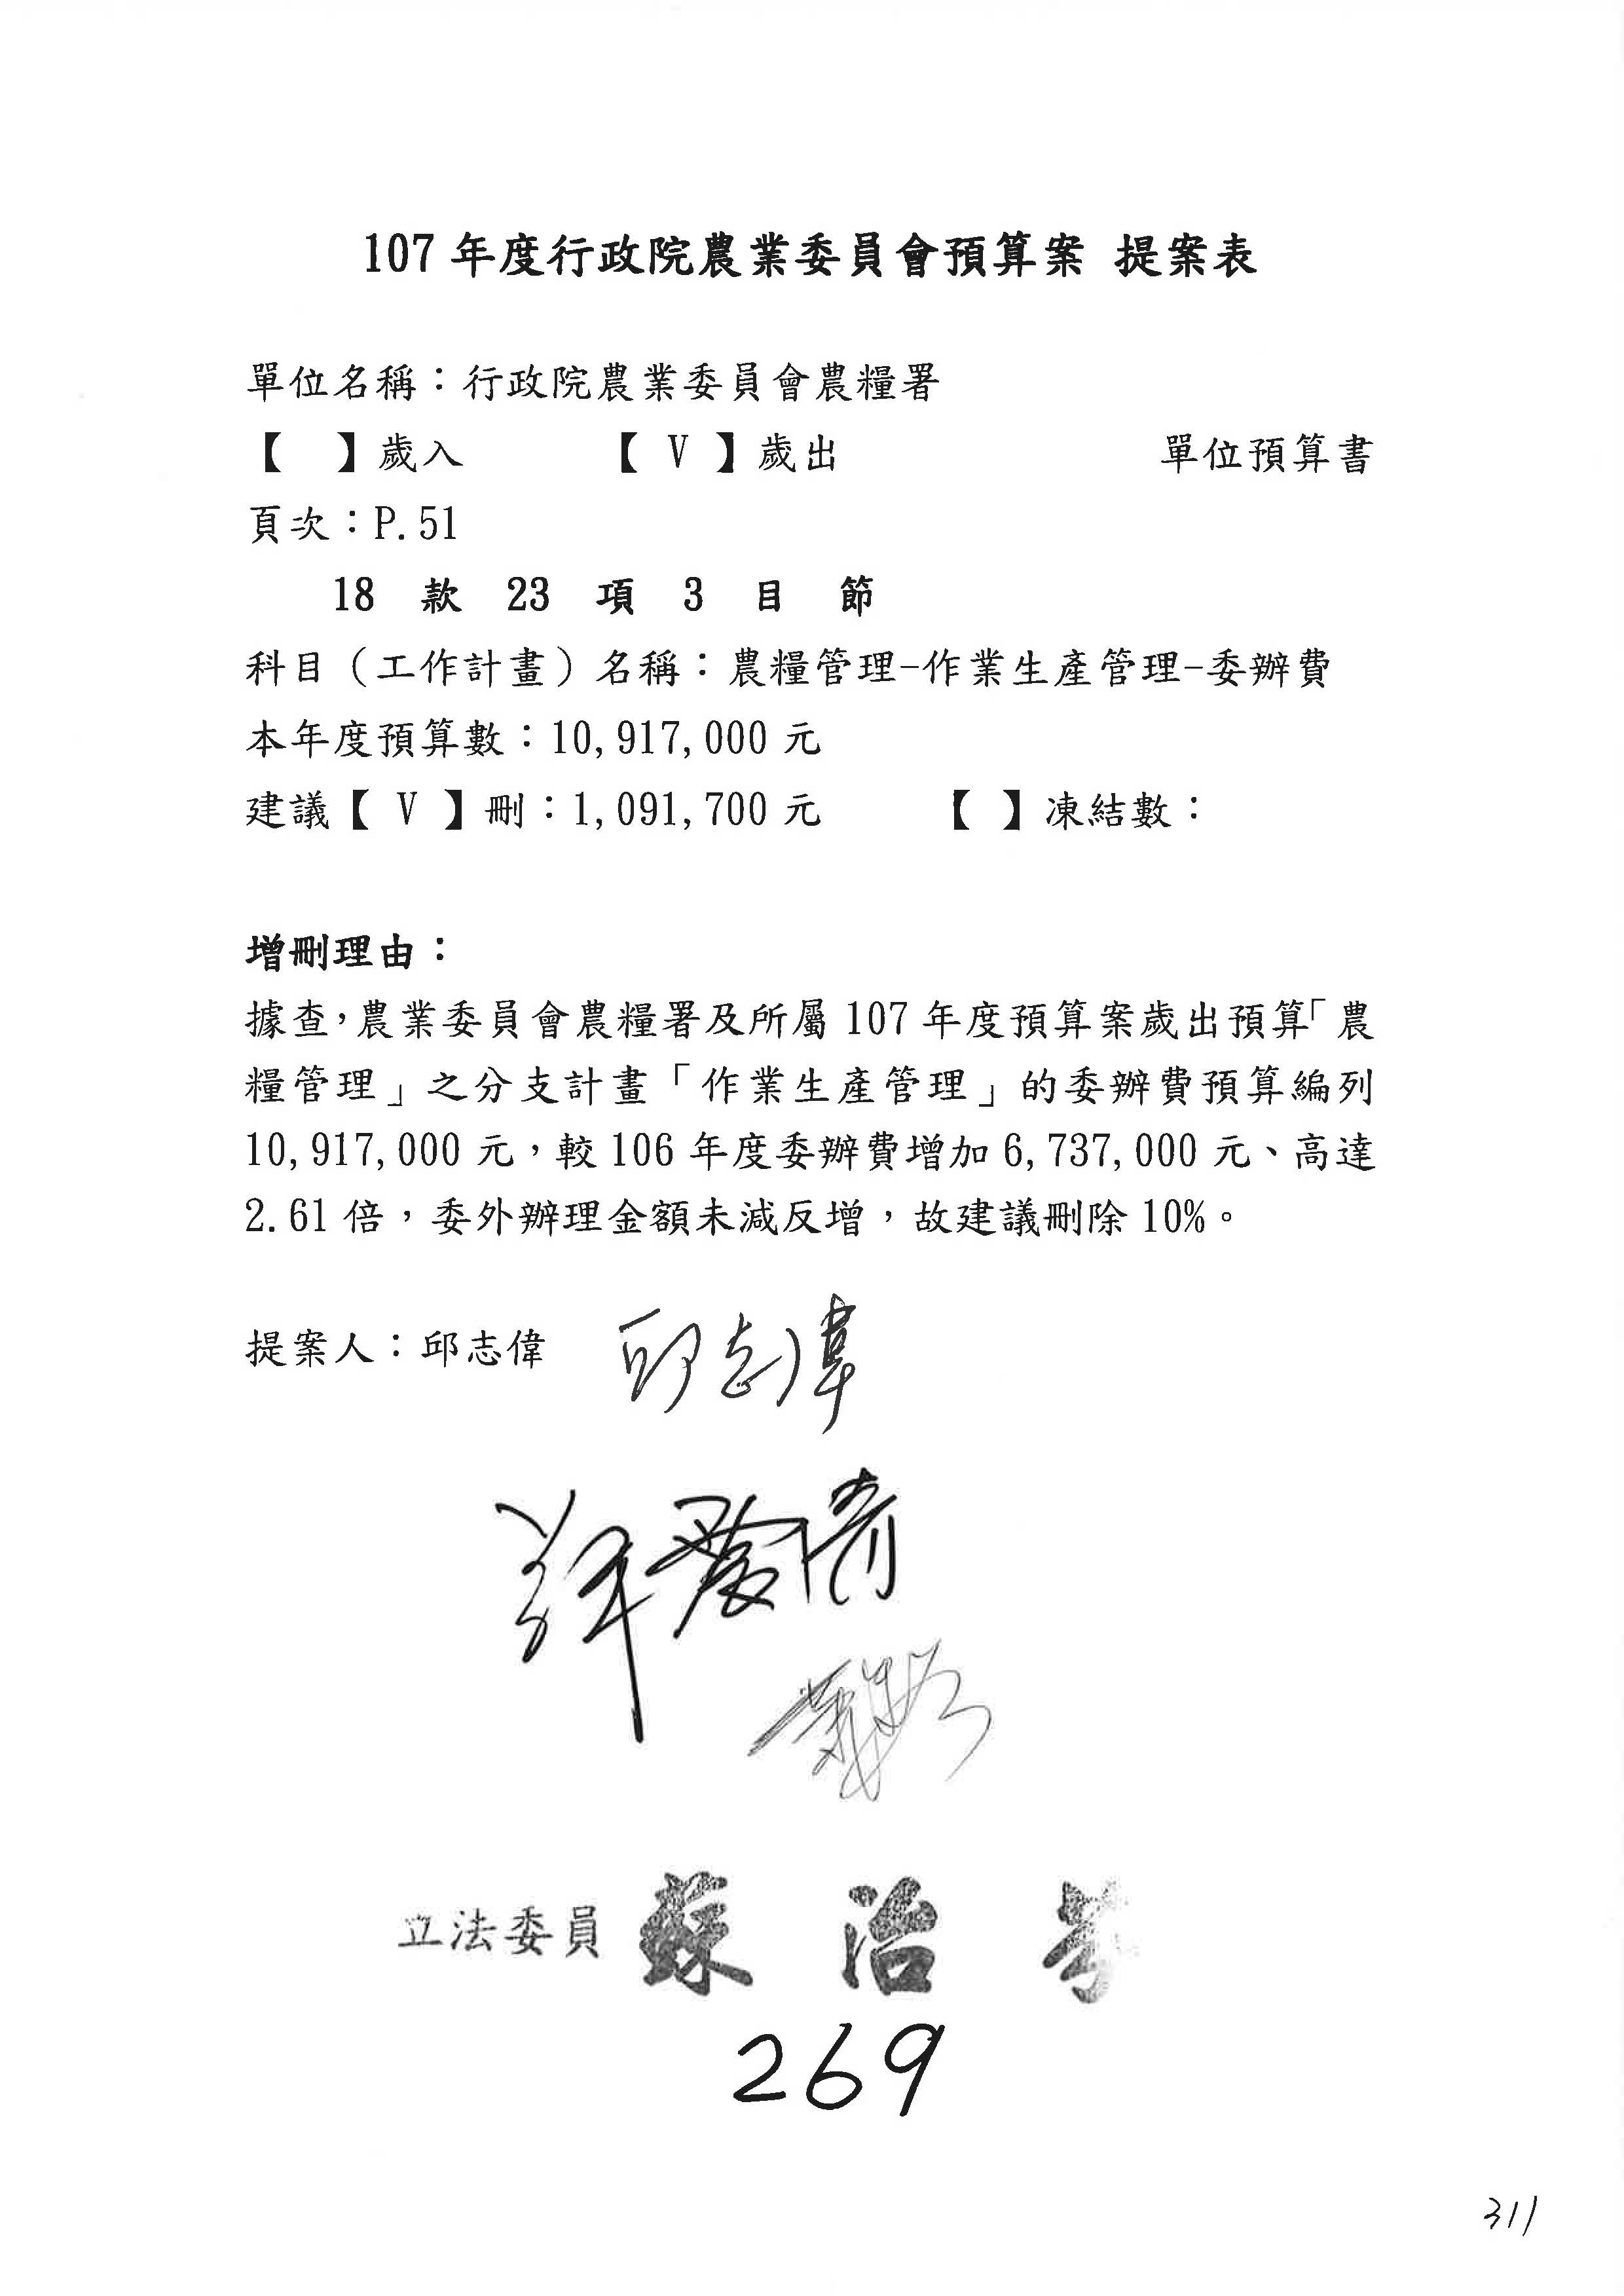 107 年度行政院農業委員會預算案 提案表
單位名稱：行政院農業委員會農糧署
【　】歲入　【 V 】歲出　單位預算書
頁次：P.51
18 款 23 項 3 目 節
科目（工作計畫）名稱：農糧管理-作業生產管理-委辦費
本年度預算數：10,917,000 元
建議【 V 】刪：1,091,700 元　【 】凍結數：
增刪理由：
據查，農業委員會農糧署及所屬 107 年度預算案歲出預算「農
糧管理」之分支計畫「作業生產管理」的委辦費預算編列
10,917,000 元，較 106 年度委辦費增加 6,737,000 元、高達
2.61 倍，委外辦理金額未減反增，故建議刪除 10%。
提案人：邱志偉 邱志偉
立法委員 蘇治芬
269
311